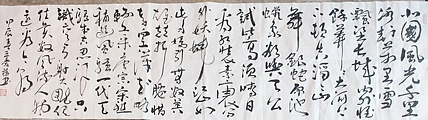 北國風光千里
冰封萬里雪
飄望長城內外惟
餘莽莽大河上
下頓失滔滔山
舞銀蛇原馳
蠟象欲與天公
試比高須晴日
看紅裝素裹分外
妖嬈江山如
此多嬌引無數英
雄競折腰惜
秦皇漢武略
輸文采唐宗宋祖
稍遜風騷一代天驕
成吉思汗只
識彎弓射大雕俱
往矣數風流人物
還看今朝
甲辰